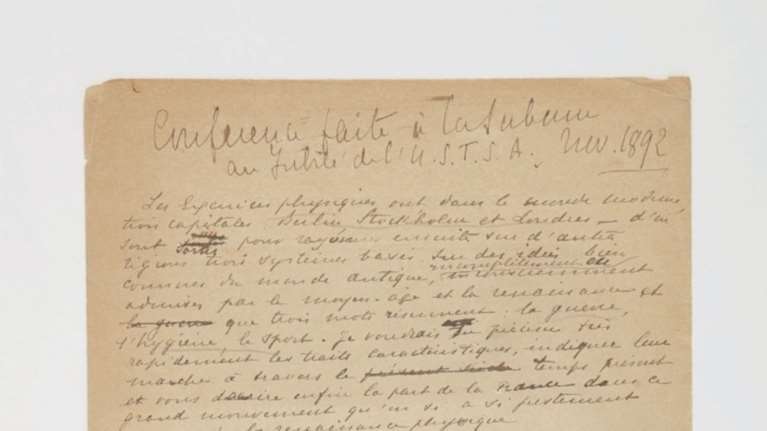 Conférence faite à la Sorbonne
au Jubilé de l'U.S.F.S.A. Nov. 1892
Les Exercices physiques ont dans le monde moderne
trois capitales Berlin Stockholm et Londres — d'où
sont sortis pour rayonner ensuite sur d'autres
régions trois systèmes basés sur des idées bien
connues du monde antique, incomplètement ou
admises par le moyen-âge et la renaissance et
la guerre que trois mots résument : la guerre,
l'hygiène, le sport. Je voudrais en préciser très
rapidement les traits caractéristiques, indiquer leur
marche à travers le présent siècle temps présent
et vous dire enfin la part de la France dans ce
grand mouvement qu'on a si justement
la renaissance physique